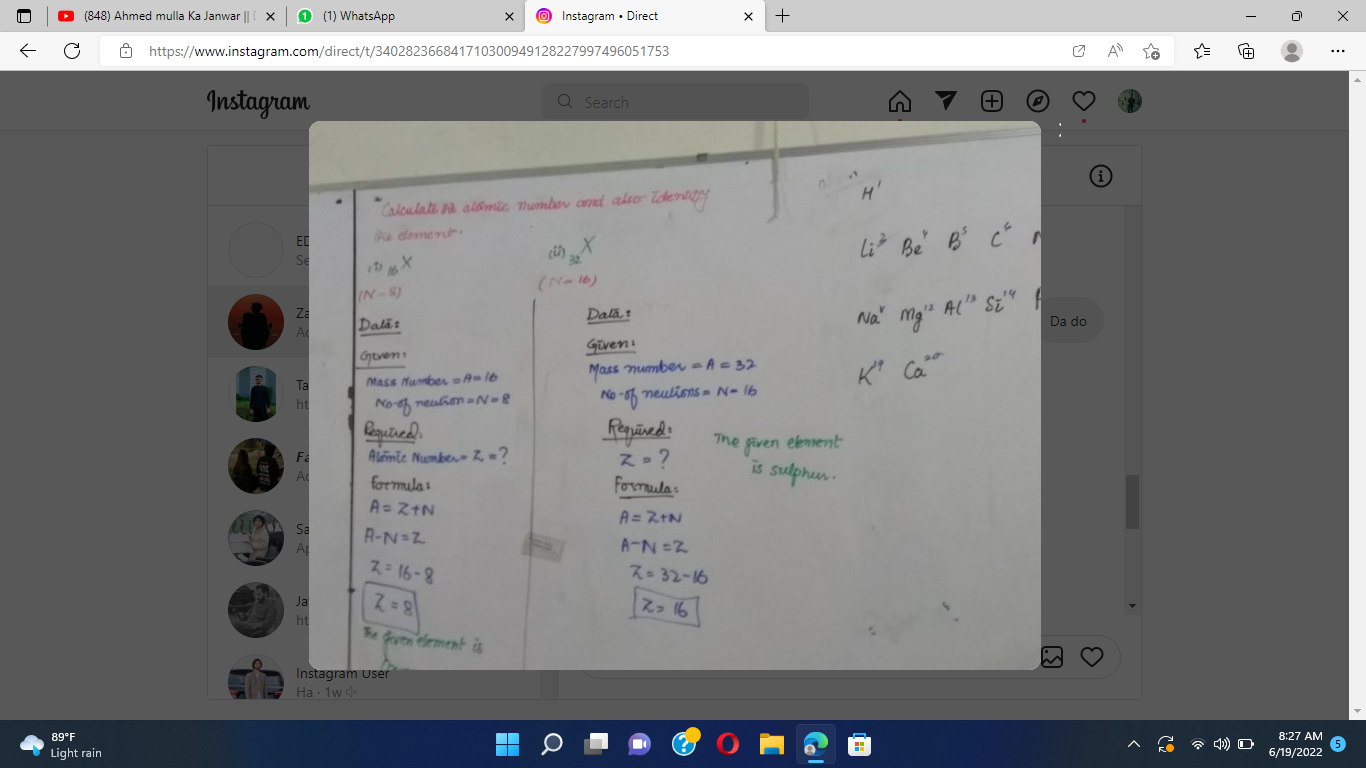 (848) Ahmed mulla Ka Janwar ||
(1) WhatsApp
Instagram • Direct
https://www.instagram.com/direct/t/340282366841710300949128227997496051753
Instagram
Search
"Calculate the atomic number and also identify
the element.
(i) 16 X
(N-8)
(ii) 32 X
(N=16)
Data:
Given:
Mass Number = A=16
No-of neutron=N=8
Required:
Atomic Number= Z =?
Formula:
A= Z+N
A-N=Z
Z=16-8
Z=8
The given element is
Data:
Given:
Mass number = A = 32
No-of neutrons= N=16
Required:
Z = ?
Formula:
A = Z+N
A-N =Z
Z=32-16
Z= 16
The given element
is sulphur.
H 1
Li 3 Be 4 B 5 C 6
Na Mg 12 Al 13 Si 14
K 19 Ca 20
Da do
Instagram User
Ha · 1w
89°F
Light rain
8:27 AM
6/19/2022
5